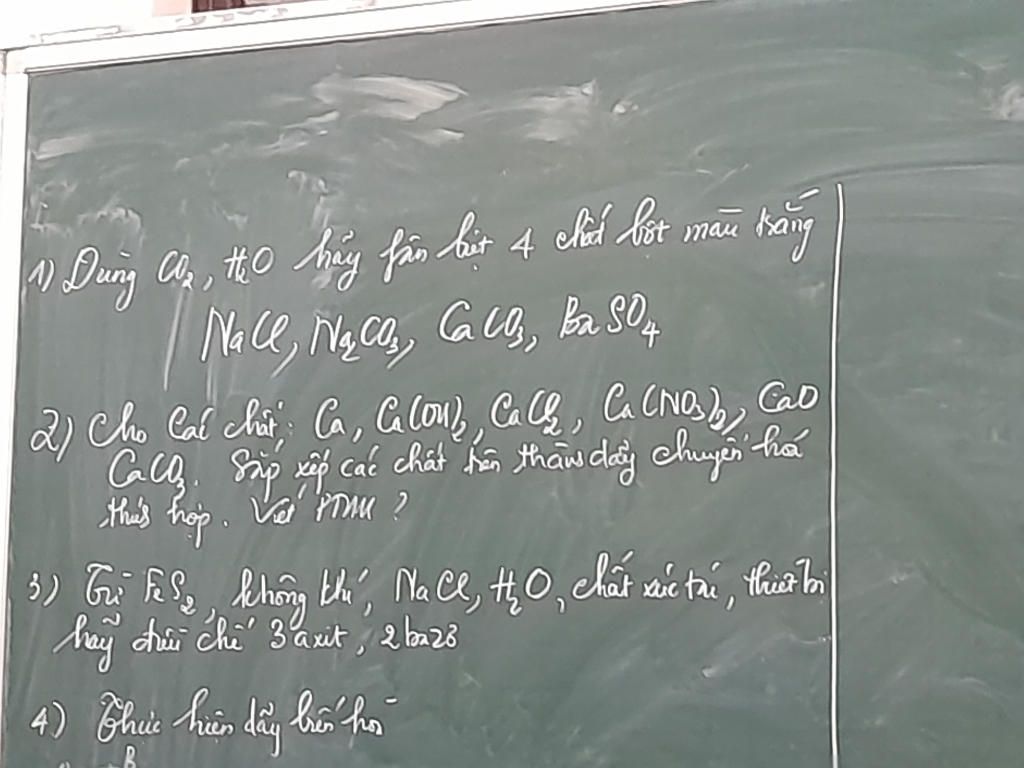 1) Dùng CO₂, H₂O hãy fân biệt 4 chất bột màu trắng
NaCl, Na₂CO₃, CaCO₃, BaSO₄
2) Cho các chất: Ca, Ca(OH)₂, CaCl₂, Ca(NO₃)₂, CaO
CaCO₃. Sắp xếp các chất trên thành dãy chuyển hoá
thích hợp. Viết PTHH ?
3) Từ FeS₂, không khí, NaCl, H₂O, chất xúc tác, thiết bị
hãy điều chế 3 axit, 2 bazơ
4) Thực hiện dãy biến hoá